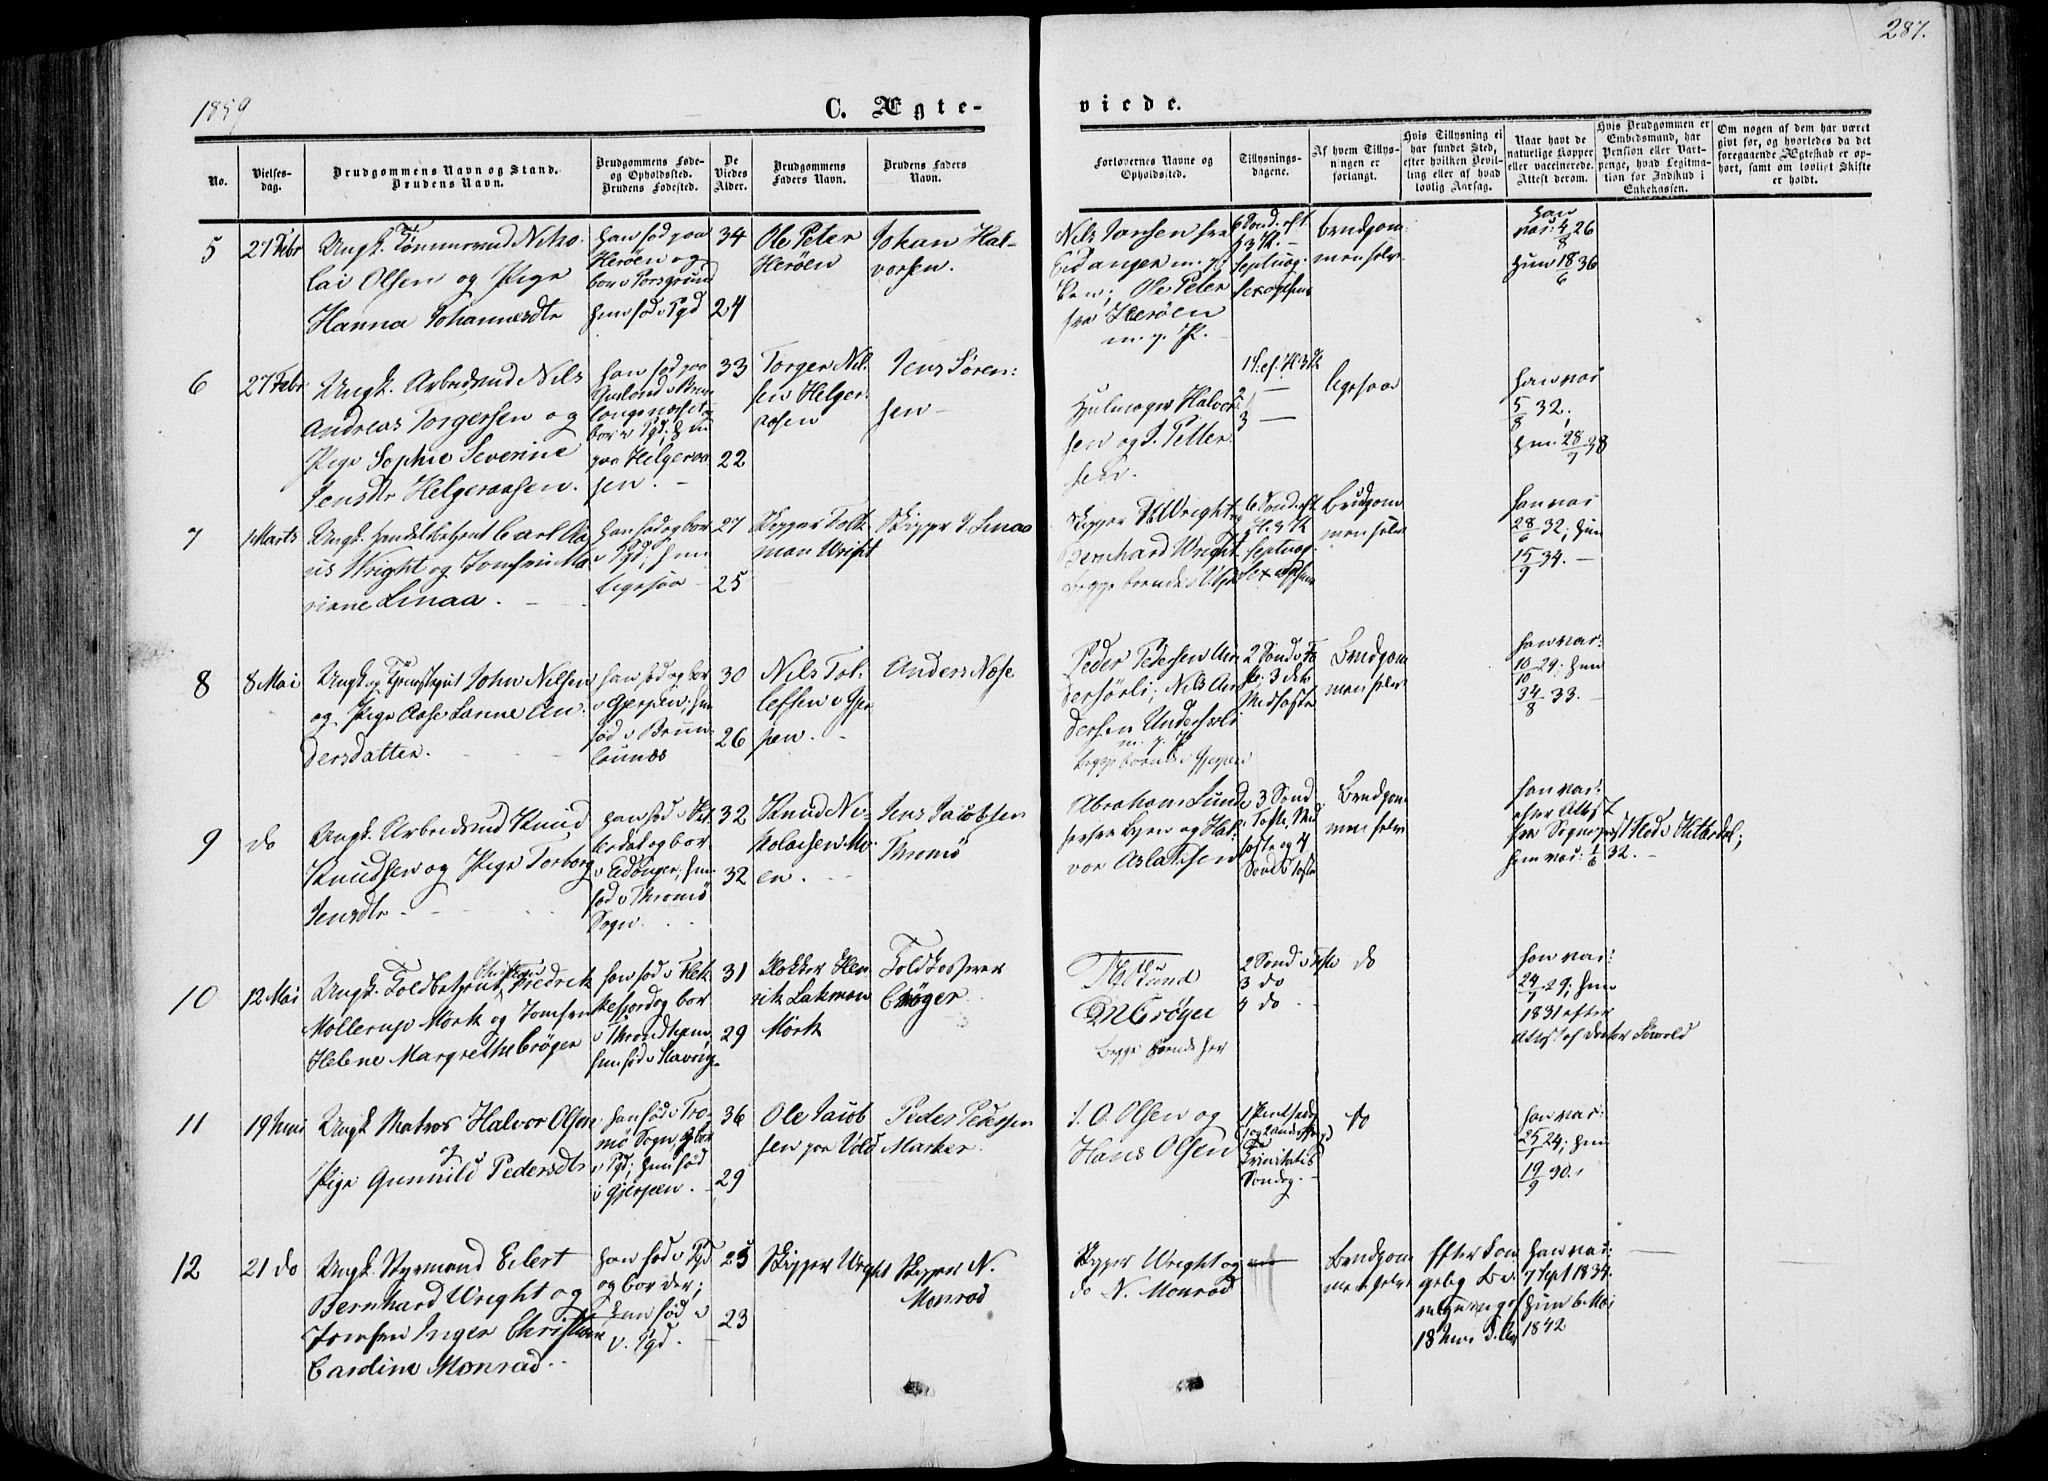 287.
1859
C. Ægte-
viede.
No.
Vielses-
dag.
Brudgommens Navn og Stand.
Brudens Navn.
Brudgommens Føde-
og Opholdssted.
Brudens Fødested.
De
Viedes
Alder.
Brudgommens
Faders Navn.
Brudens Faders
Navn.
Forlovernes Navne og
Opholdssted.
Tillysnings-
dagene.
Af hvem Tillys-
ningen er
forlangt.
Hvis Tillysning ei
har fundet Sted,
efter hvilken Bevil-
ling eller af hvad
lovlig Aarsag.
Naar havt de
naturlige Kopper
eller vaccinerede.
Attest derom.
Hvis Brudgommen er
Embedsmand, har
Pension eller Vart-
penge, hvad Legitma-
tion for Indskud i
Enkekassen.
Om nogen af dem har været
givt før, og hvorledes da det
foregaaende Ægteskab er op-
hørt, samt om lovligt Skifte
er holdt.
5
27 Febr
Ungk. Tømmermd Niko-
lai Olsen og Pige
Hanna Johannesdtr
han fød paa
Herøen og
bor i Porsgrund
hun fød i Pgd
34
24
Ole Peter
Herøen
Johan Hal-
vorsen.
Nils Jansen fra
Eidanger m. p.
Ole Peter
fra Herøen
m. p. P.
6 Sond. eft
H 3 K. -
Septuag.
Sexages
Brudgom
men selv
han
vac: 4/8 26
hun 18/6 36
6
27 Febr
Ungk. Arbeidsmd Nils
Andreas Torgersen og
Pige Sophie Severine
Jensdtr Helgeraasen.
han fød paa
bor i Pgd; hun
paa Helgeraa
sen.
33
22
Torger Nil-
sen Helge-
raasen
Jens Søren-
sen
Hjulmager Halvor
sen og J. Petter
sen.
1 S. ef. H 3 K
2 -
3 -
ligesaa
han vac
5/8 32;
hun 28/7 38
7
1 Marts
Ungk. Handelsbetjent Carl Ma
ius Wright og Jomfru Ma
riane Linaa.
han fød og bor
i Pgd; hun
ligesaa
27
25
Skipper Tolk
man Wright
Skipper J. Linaa
Skipper Wright
Bernhard Wright
6 Sond. eft
H 3 K
Septuag.
Sexages
Brudgom
men selv
han vac
28/6 32; hun
15/9 34. -
8
8 Mai
Ungk. og Tjenestegut John Nilsen
og Pige Aase Lanne An-
dersdatter.
han fød og bor
i Gjerpen; hun
fød i Brun
lanæs
30
26
Nils Tol-
lefsen i Gjer
pen.
Anders Næse
Peder Pedersen
Nils An
dersen
m. p. P.
begge boende i Gjerpen
2 Sond i Fa
ste; 3 do
Midfaste
Brudgom
men selv
han vac:
10/10 29; hun
24/8 33. -
9
do
Ungk. Arbeidsmd Knud
Knudsen og Pige Torborg
Jensdtr.
han fød i Hit
terdal og bor
i Eidanger; hun
fød i Thromø
Sogn.
32
32
Knud Ni-
kolaisen Mo
en.
Jens Jacobsen
Thromø
Abraham Lund
Byen og Hal-
vor Aslaksen
3 Sond
i Faste; Mid
faste og 4
Sond i Faste
Brudgom
men selv
han vac:
efter Attest
fra Sognepræst Flod i Hitterdal;
hun vac: 1/6 32. -
10
12 Mai
Ungk. Toldbetjent Christian Fredrik
Mollerup Mørk og Jomfru
Helene Margrethe Crøger
han fød i Flek
kefjord og bor
i Throndhjem,
hun fød i Stavrig
31
29
Klokker Hen
rik Lakman
Mørk
Toldkasserer
Crøger.
Lund
Crøger
begge boende her
2 Sond i Faste
3 do
4 do
do
han vac:
24/7 29; hun
1831 efter
Attest af Doctor Liewold
11
19 Juni
Ungk. Matros Halvor Olsen
og
Pige Gunnild Pedersdtr
han fød i Tro-
mø Sogn, og bor
i Pgd; hun fød
i Gjerpen.
36
29
Ole Jacob
sen paa Vold
Peder Pedersen
Marker.
O. Olsen og
Hans Olsen
1 Pintsedag
og anden
Trinitatis
Søndag. -
do
han vac:
25/7 24; hun
19/9 30.
12
21 do
Ungk. Styrmand Eilert
Bernhard Wright og
Jomfru Inger Christiane
Caroline Monrad.
han fød i Pgd
og bor der;
hun fød i
v. Pgd.
25
23
Skipper Wright
Skipper N.
Monrad
Skipper Wright og
do N. Monrad
Brudgom
men selv
Efter Kon
gelig Be-
villing af
18 Juni d. A.
han vac:
7 Sept 1834.
hun 6 Mai
1842